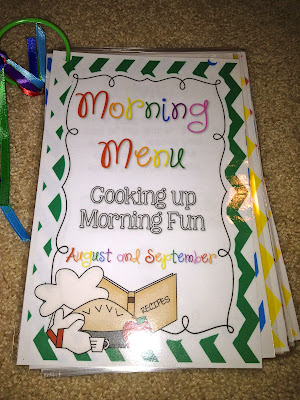 Morning
Menu
Cooking up
Morning Fun
August and September
RECIPES